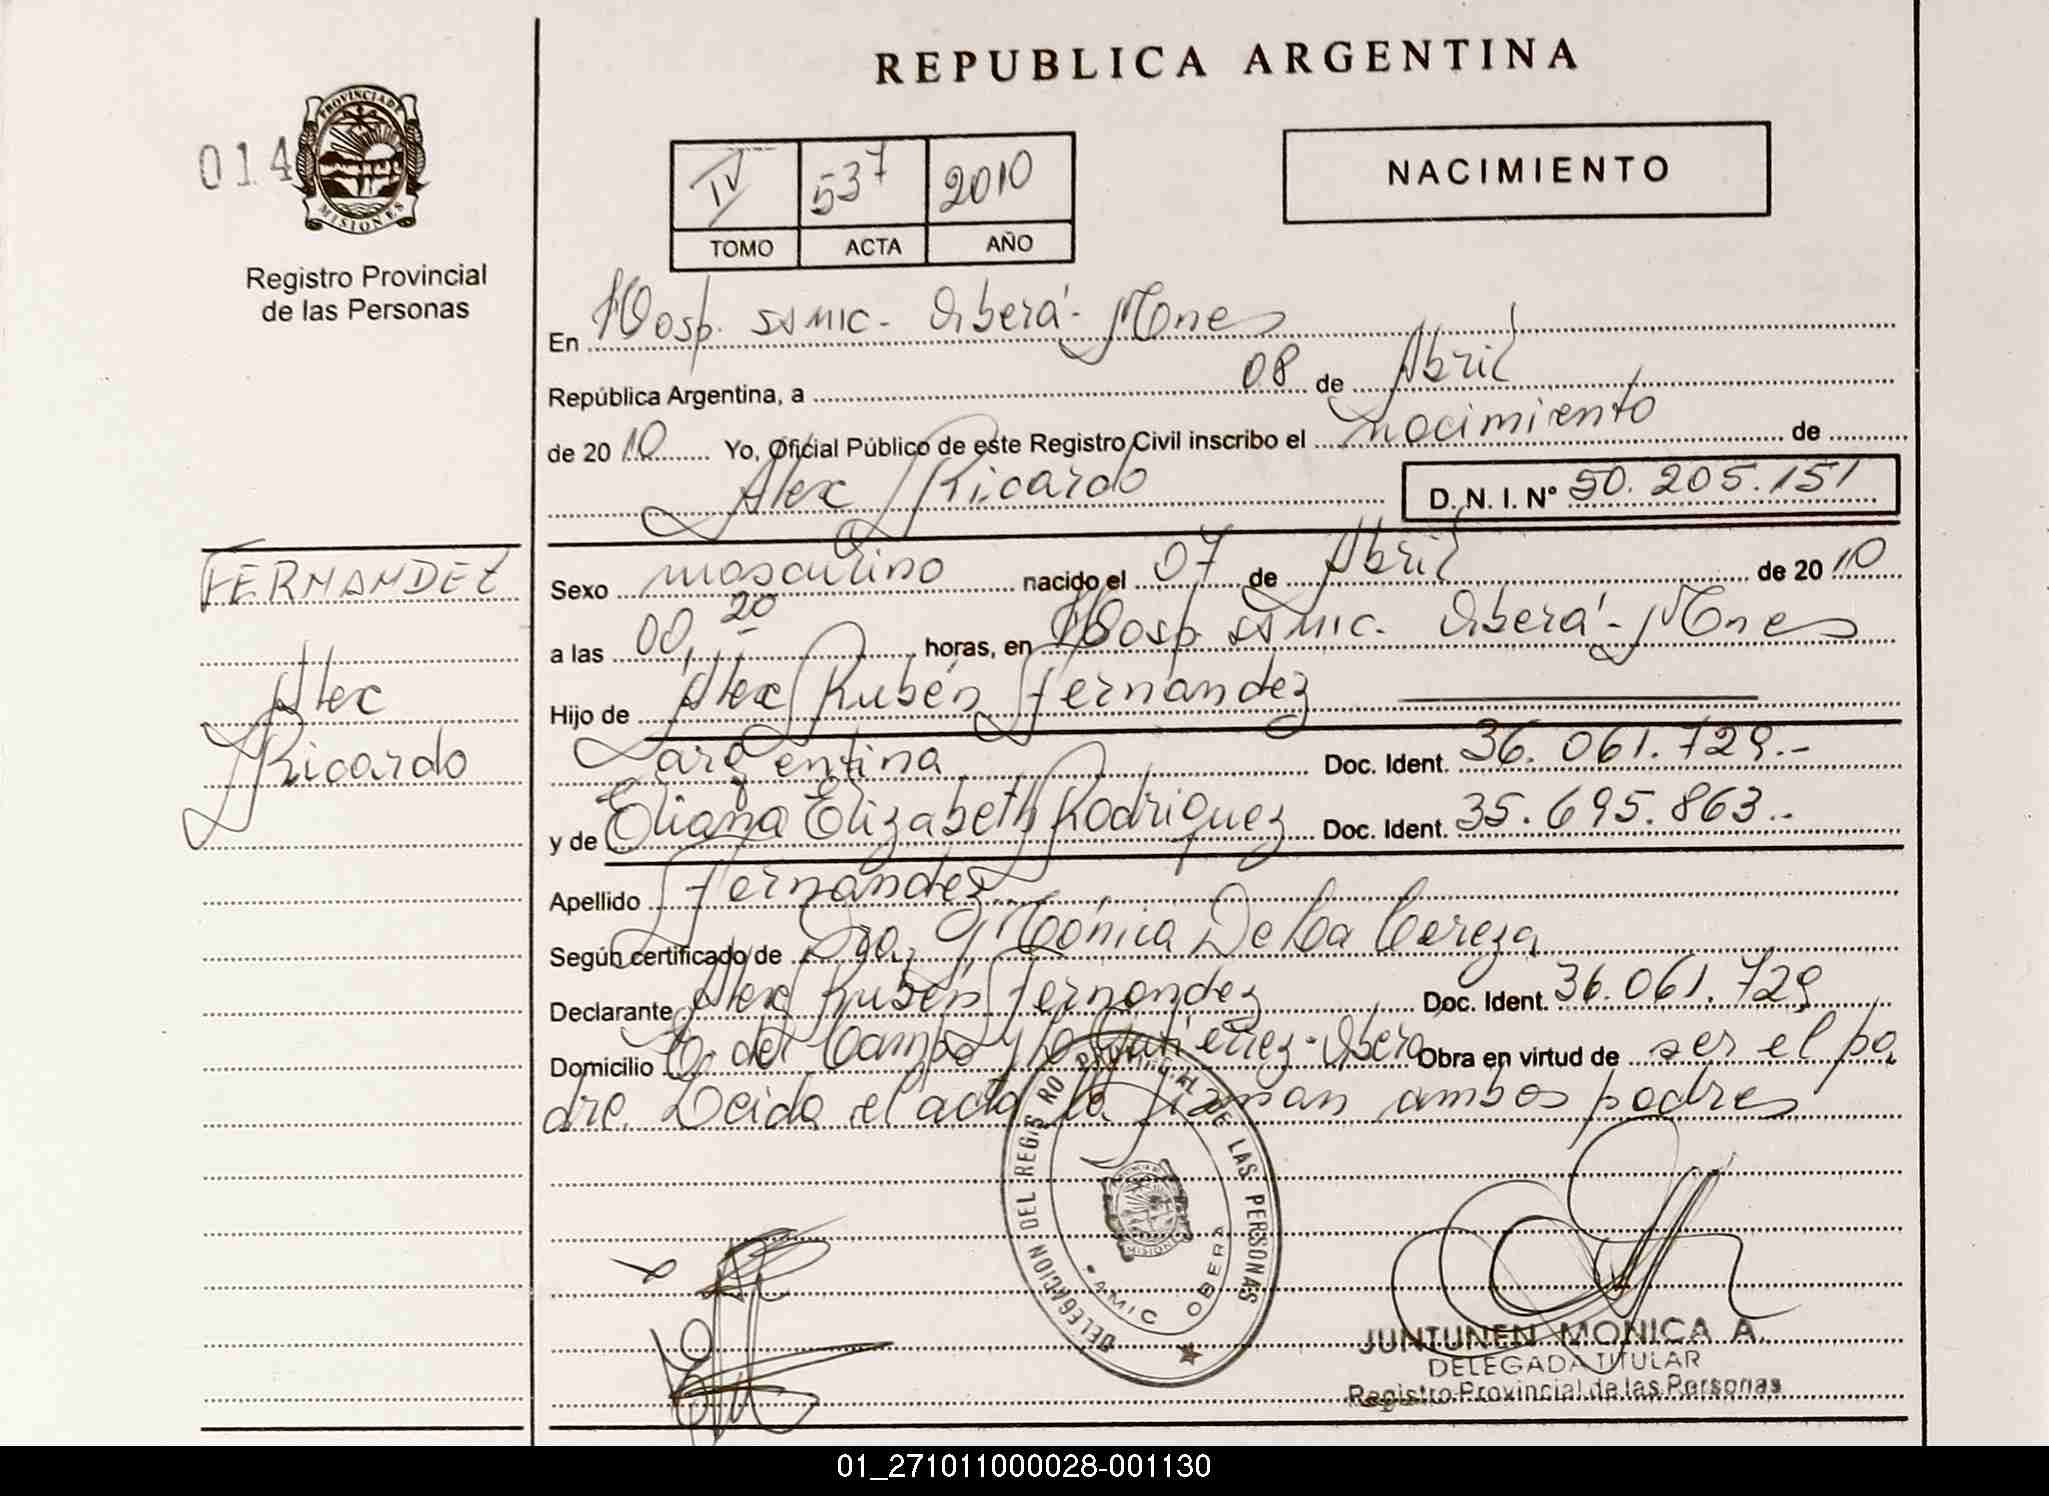 REPUBLICA ARGENTINA
014
PROVINCIA DE
MISIONES
Registro Provincial
de las Personas
NACIMIENTO
IV 537 2010
TOMO ACTA AÑO
En Hosp. SAMIC - Oberá - Mnes
República Argentina, a 08 de Abril
de 2010 Yo, Oficial Público de este Registro Civil inscribo el nacimiento de
Alex Ricardo D. N. I. Nº 50.205.151
FERNANDEZ
Alex
Ricardo
Sexo masculino nacido el 07 de Abril de 2010
a las 00,20 horas, en Hosp. SAMIC. Oberá - Mnes
Hijo de Alex Rubén Fernández
argentina Doc. Ident. 36.061.729.-
y de Eliana Elizabeth Rodriguez Doc. Ident. 35.695.863.-
Apellido Fernández
Según certificado de Dra. Mónica De La
Declarante Alex Rubén Fernández Doc. Ident. 36.061.729
Domicilio del Campo y Gutiérrez - Oberá Obra en virtud de ser el pa
dre. Leida el acta la firman ambos padres
DELEGACION DEL REGISTRO PROVINCIAL DE LAS PERSONAS
SAMIC OBERA
JUNTUNEN MONICA A.
DELEGADA TITULAR
Registro Provincial de las Personas
01_271011000028-001130